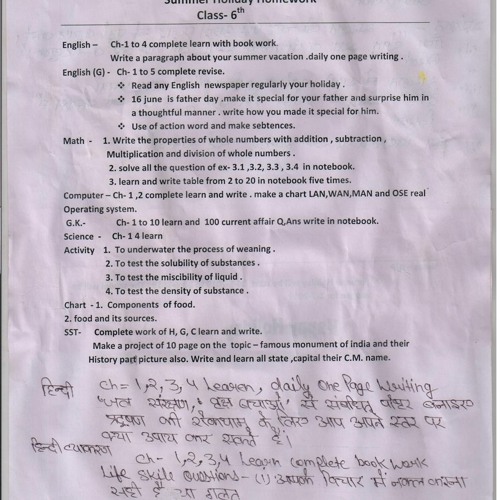 Summer Holiday Homework
Class- 6th
English – Ch-1 to 4 complete learn with book work.
Write a paragraph about your summer vacation .daily one page writing .
English (G) - Ch- 1 to 5 complete revise.
❖ Read any English newspaper regularly your holiday .
❖ 16 june is father day .make it special for your father and surprise him in
a thoughtful manner . write how you made it special for him.
❖ Use of action word and make sebtences.
Math - 1. Write the properties of whole numbers with addition , subtraction ,
Multiplication and division of whole numbers .
2. solve all the question of ex- 3.1 ,3.2, 3.3 , 3.4 in notebook.
3. learn and write table from 2 to 20 in notebook five times.
Computer – Ch- 1 ,2 complete learn and write . make a chart LAN,WAN,MAN and OSE real
Operating system.
G.K.- Ch- 1 to 10 learn and 100 current affair Q,Ans write in notebook.
Science - Ch- 1 4 learn
Activity 1. To underwater the process of weaning .
2. To test the solubility of substances .
3. To test the miscibility of liquid .
4. To test the density of substance .
Chart - 1. Components of food.
2. food and its sources.
SST- Complete work of H, G, C learn and write.
Make a project of 10 page on the topic – famous monument of india and their
History part picture also. Write and learn all state ,capital their C.M. name.
हिन्दी ch = 1,2,3,4 Learen, daily one Page Writing
"जल संरक्षण, वृक्ष बचाओ" से संबंधित पोस्टर बनाइए
प्रदूषण की रोकथाम के लिए आप अपने स्तर पर
क्या उपाय कर सकते हैं।
हिन्दी व्याकरण ch- 1,2,3,4 Learn complete book work
Life skile questions- (1) आपके विचार में नकल करना
सही है या गलत